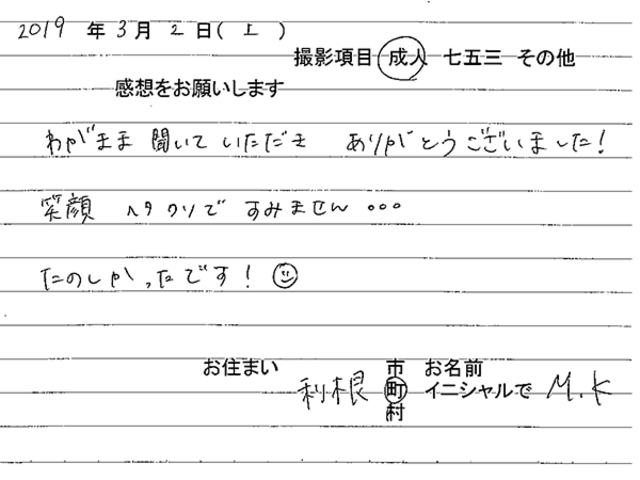 2019 年 3 月 2 日( 土 )
撮影項目 成人 七五三 その他
感想をお願いします
わがまま 聞いて いただき ありがとうございました!
笑顔 ヘタクソで すみません 。。。
たのしかったです! ☺
お住まい 利根 市 町 村 お名前 イニシャルで M.K